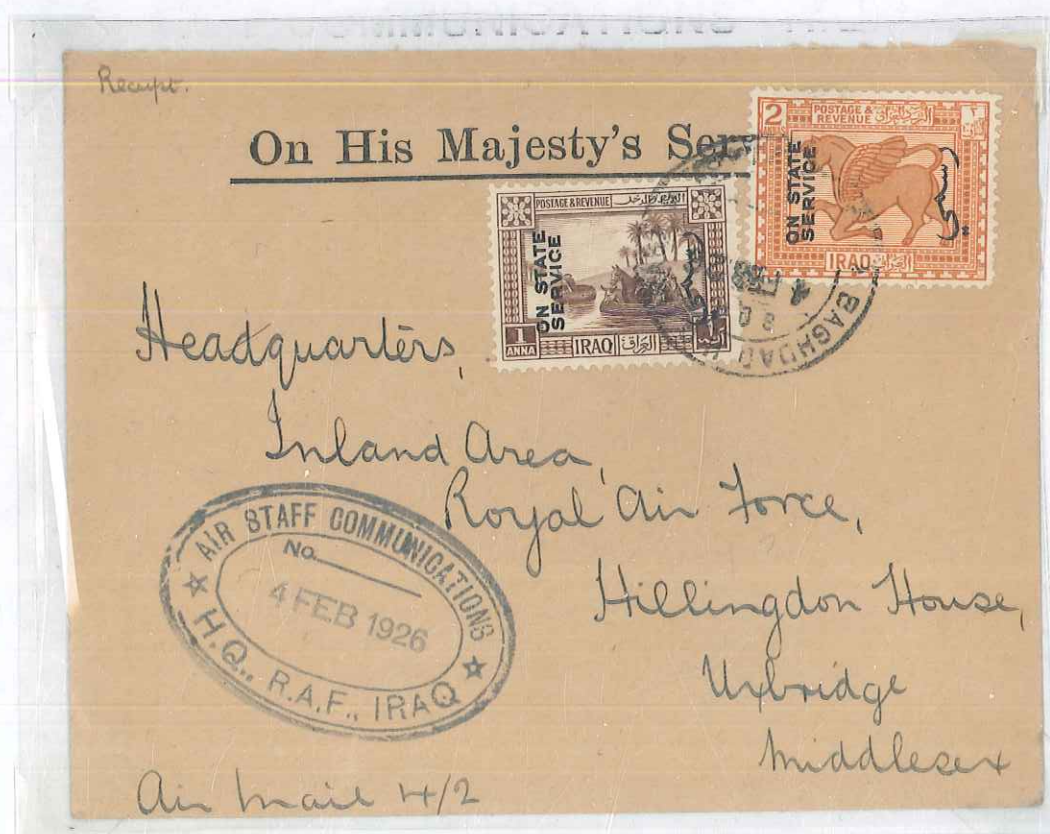 Receipt.
On His Majesty's Ser
2
ANNAS
POSTAGE &
REVENUE
ON STATE
SERVICE
رسمي
IRAQ
العراق
POSTAGE & REVENUE
ON STATE
SERVICE
رسمي
1
ANNA
IRAQ
العراق
BAGHDAD
4 FEB
Headquarters,
Inland Area,
Royal Air Force,
Hillingdon House,
Uxbridge
Middlesex
AIR STAFF COMMUNICATIONS
No.
4 FEB 1926
H.Q., R.A.F., IRAQ
Air Mail 4/2